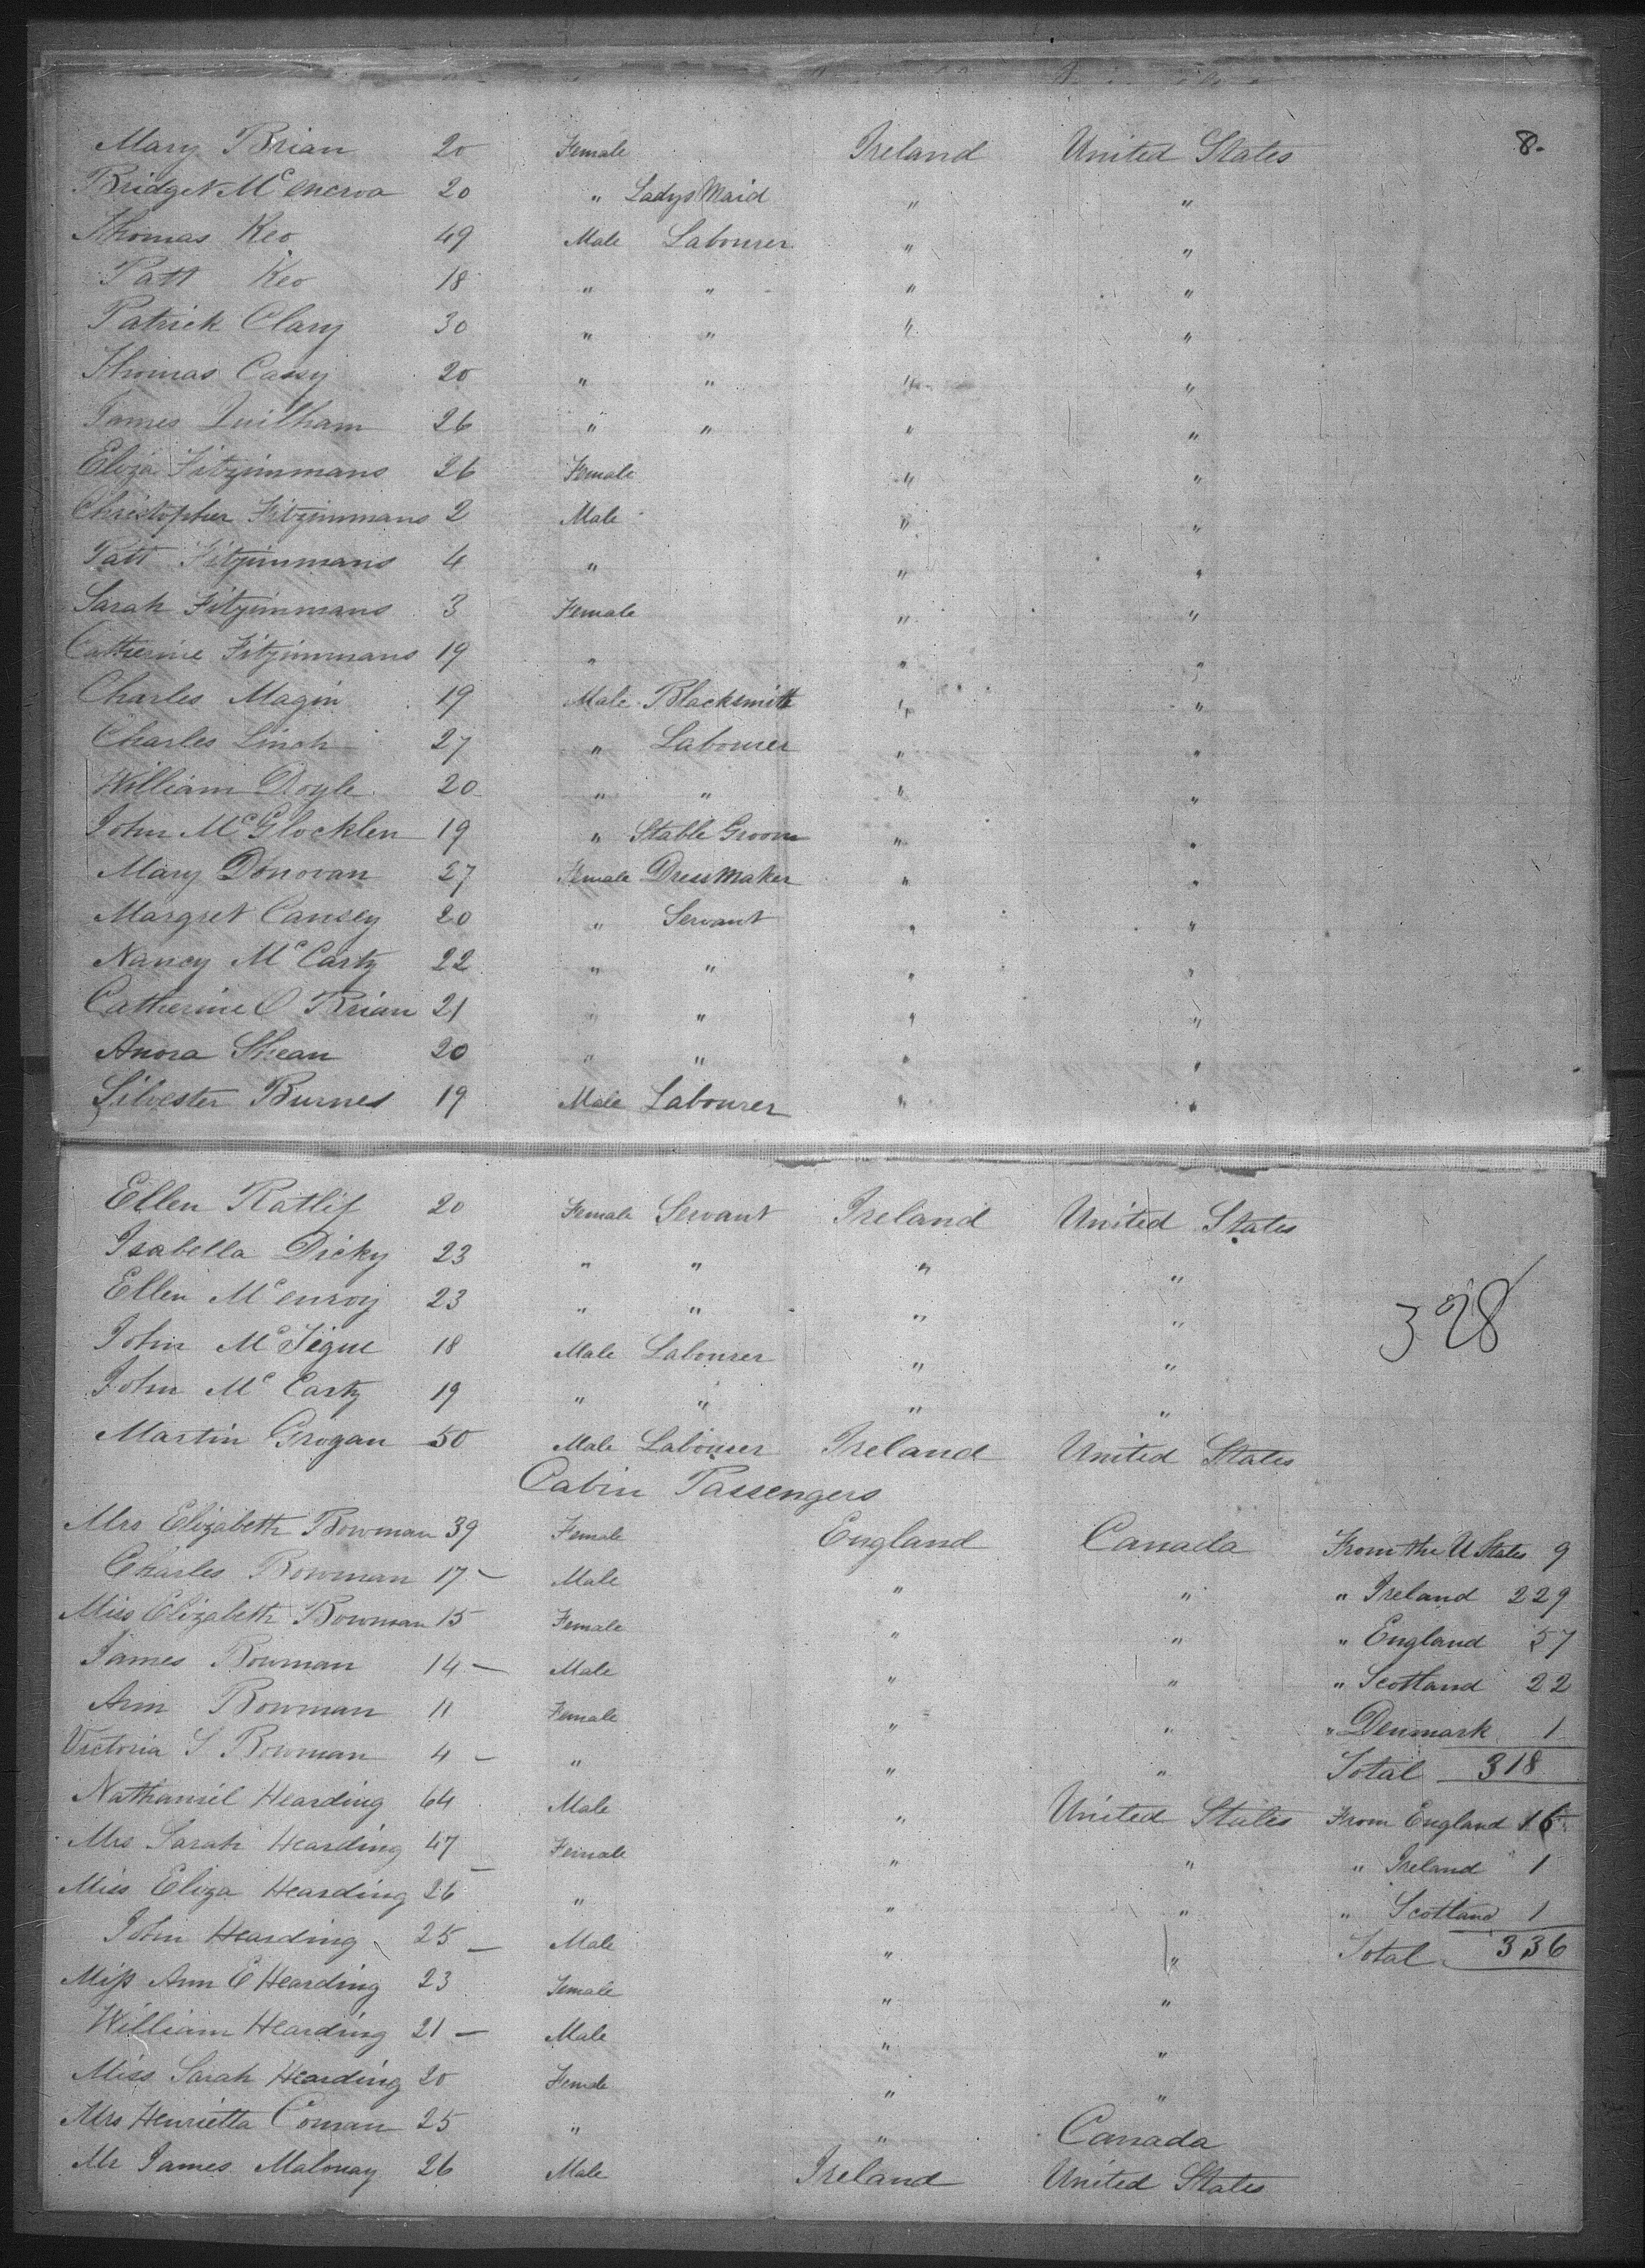 8.
Mary Brian 20 Female Ireland United States
Bridget Mc enerva 20 " Ladys Maid " "
Thomas Keo 49 Male Labourer " "
Patt Keo 18 " " " "
Patrick Clary 30 " " " "
Thomas Cassy 20 " " " "
James Quilham 26 " " " "
Eliza Fitzimmans 26 Female " "
Christopher Fitzimmans 2 Male " "
Patt Fitzimmans 4 " " "
Sarah Fitzimmans 3 Female " "
Catherine Fitzimmans 19 " " "
Charles Magin 19 Male Blacksmith " "
Charles Linch 27 " Labourer " "
William Doyle 20 " " " "
John Mc Glocklen 19 " Stable Groom " "
Mary Donovan 27 Female Dress Maker " "
Margret Cansey 20 " Servant " "
Nancy Mc Carty 22 " " " "
Catherine O Brian 21 " " " "
Anora Shean 20 " " " "
Silvester Burnes 19 Male Labourer " "
Ellen Ratlif 20 Female Servant Ireland United States
Isabella Dicky 23 " " " "
Ellen Mc enroy 23 " " " "
328
John Mc Tigue 18 Male Labourer " "
John Mc Carty 19 " " " "
Martin Grogan 50 Male Labourer Ireland United States
Cabin Passengers
Mrs Elizabeth Bowman 39 Female England Canada From the U States 9
Charles Bowman 17 - Male " " " Ireland 229
Miss Elizabeth Bowman 15 Female " " " England 57
James Bowman 14 - Male " " " Scotland 22
Ann Bowman 11 Female " " " Denmark 1
Victoria S Bowman 4 - " " " Total 318
Nathaniel Hearding 64 Male " United States From England 16
Mrs Sarah Hearding 47 - Female " " " Ireland 1
Miss Eliza Hearding 26 " " " " Scotland 1
John Hearding 25 - Male " " Total 336
Miss Ann E Hearding 23 Female " "
William Hearding 21 - Male " "
Miss Sarah Hearding 20 Female " "
Mrs Henrietta Coman 25 " " Canada
Mr James Malonay 26 Male Ireland United States